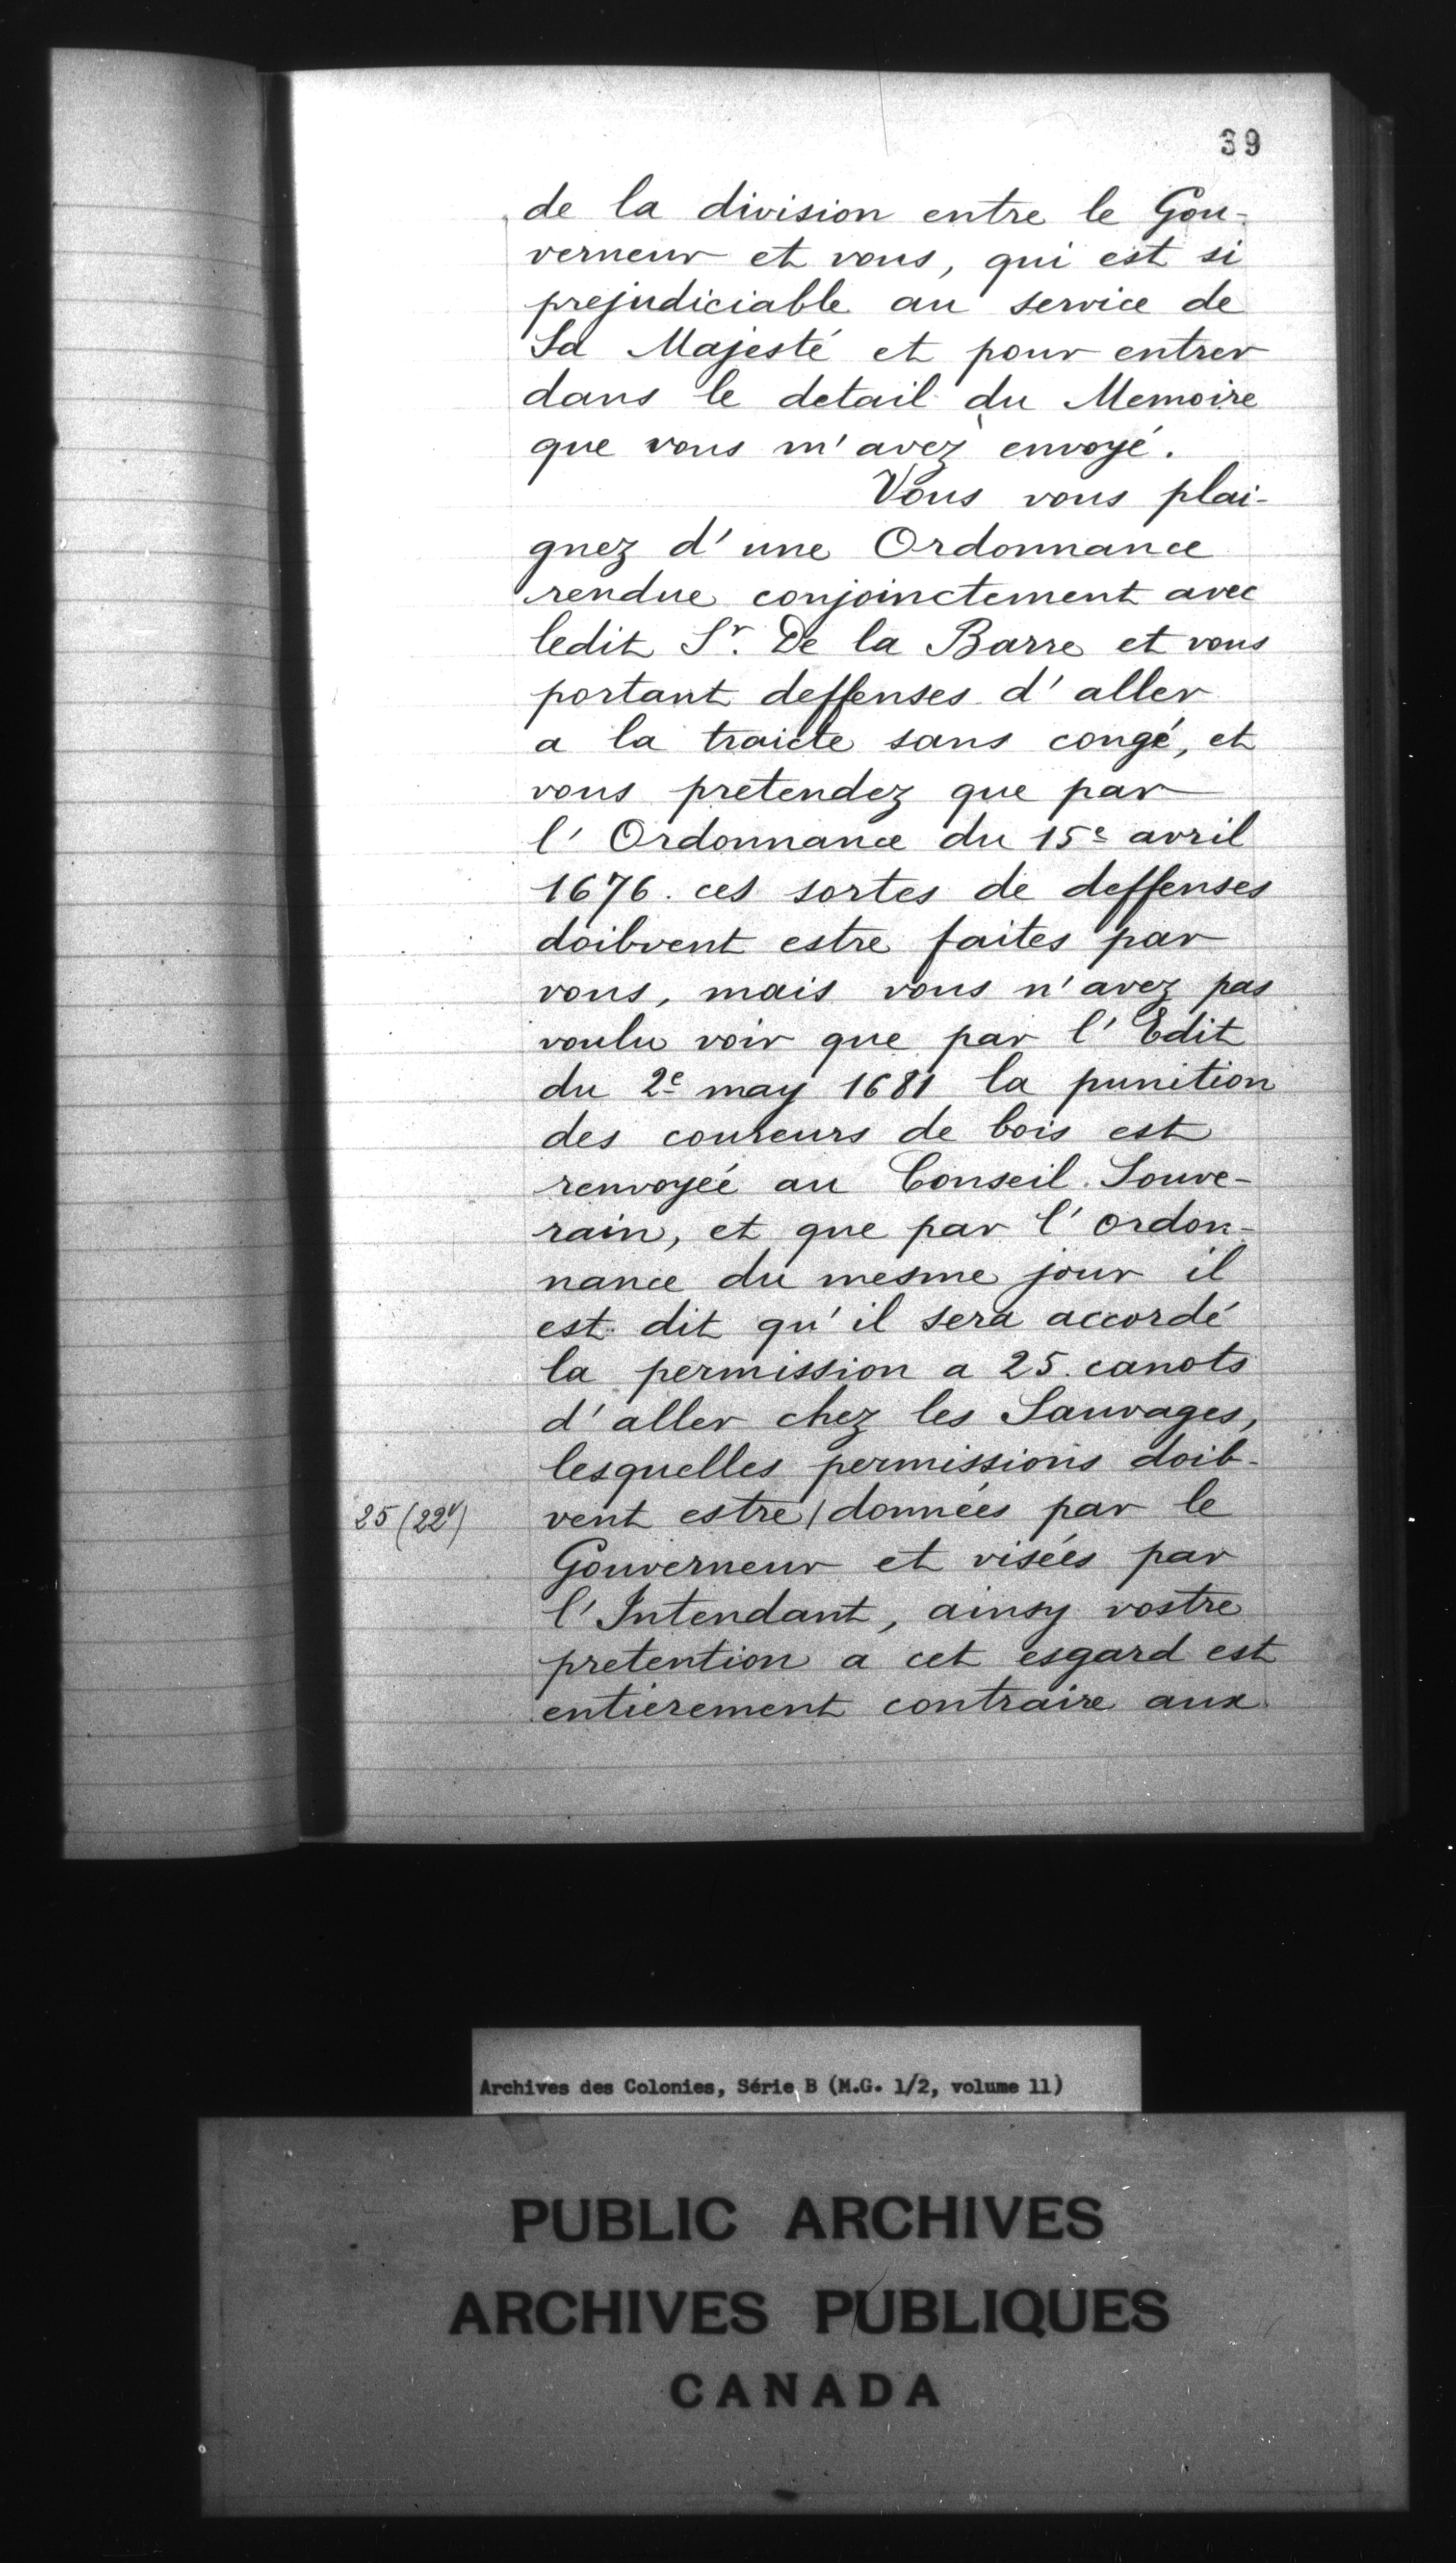 39
de la division entre le Gou-
verneur et vous, qui est si
prejudiciable au service de
Sa Majesté et pour entrer
dans le detail du Memoire
que vous m'avez envoyé.
Vous vous plai-
gnez d'une Ordonnance
rendue conjoinctement avec
ledit Sr. De la Barre et vous
portant deffenses d'aller
a la traicte sans congé, et
vous pretendez que par
l'Ordonnance du 15e avril
1676. ces sortes de deffenses
doibvent estre faites par
vous, mais vous n'avez pas
voulu voir que par l'Edit
du 2e may 1681 la punition
des coureurs de bois est
renvoyéé au Conseil Souve-
rain, et que par l'ordon-
nance du mesme jour il
est dit qu'il sera accordé
la permission a 25. canots
d'aller chez les Sauvages,
lesquelles permissions doib-
25 (22v) vent estre / données par le
Gouverneur et visées par
l'Intendant, ainsy vostre
pretention a cet esgard est
entierement contraire aux
Archives des Colonies, Série B (M.G. 1/2, volume 11)
PUBLIC ARCHIVES
ARCHIVES PUBLIQUES
CANADA